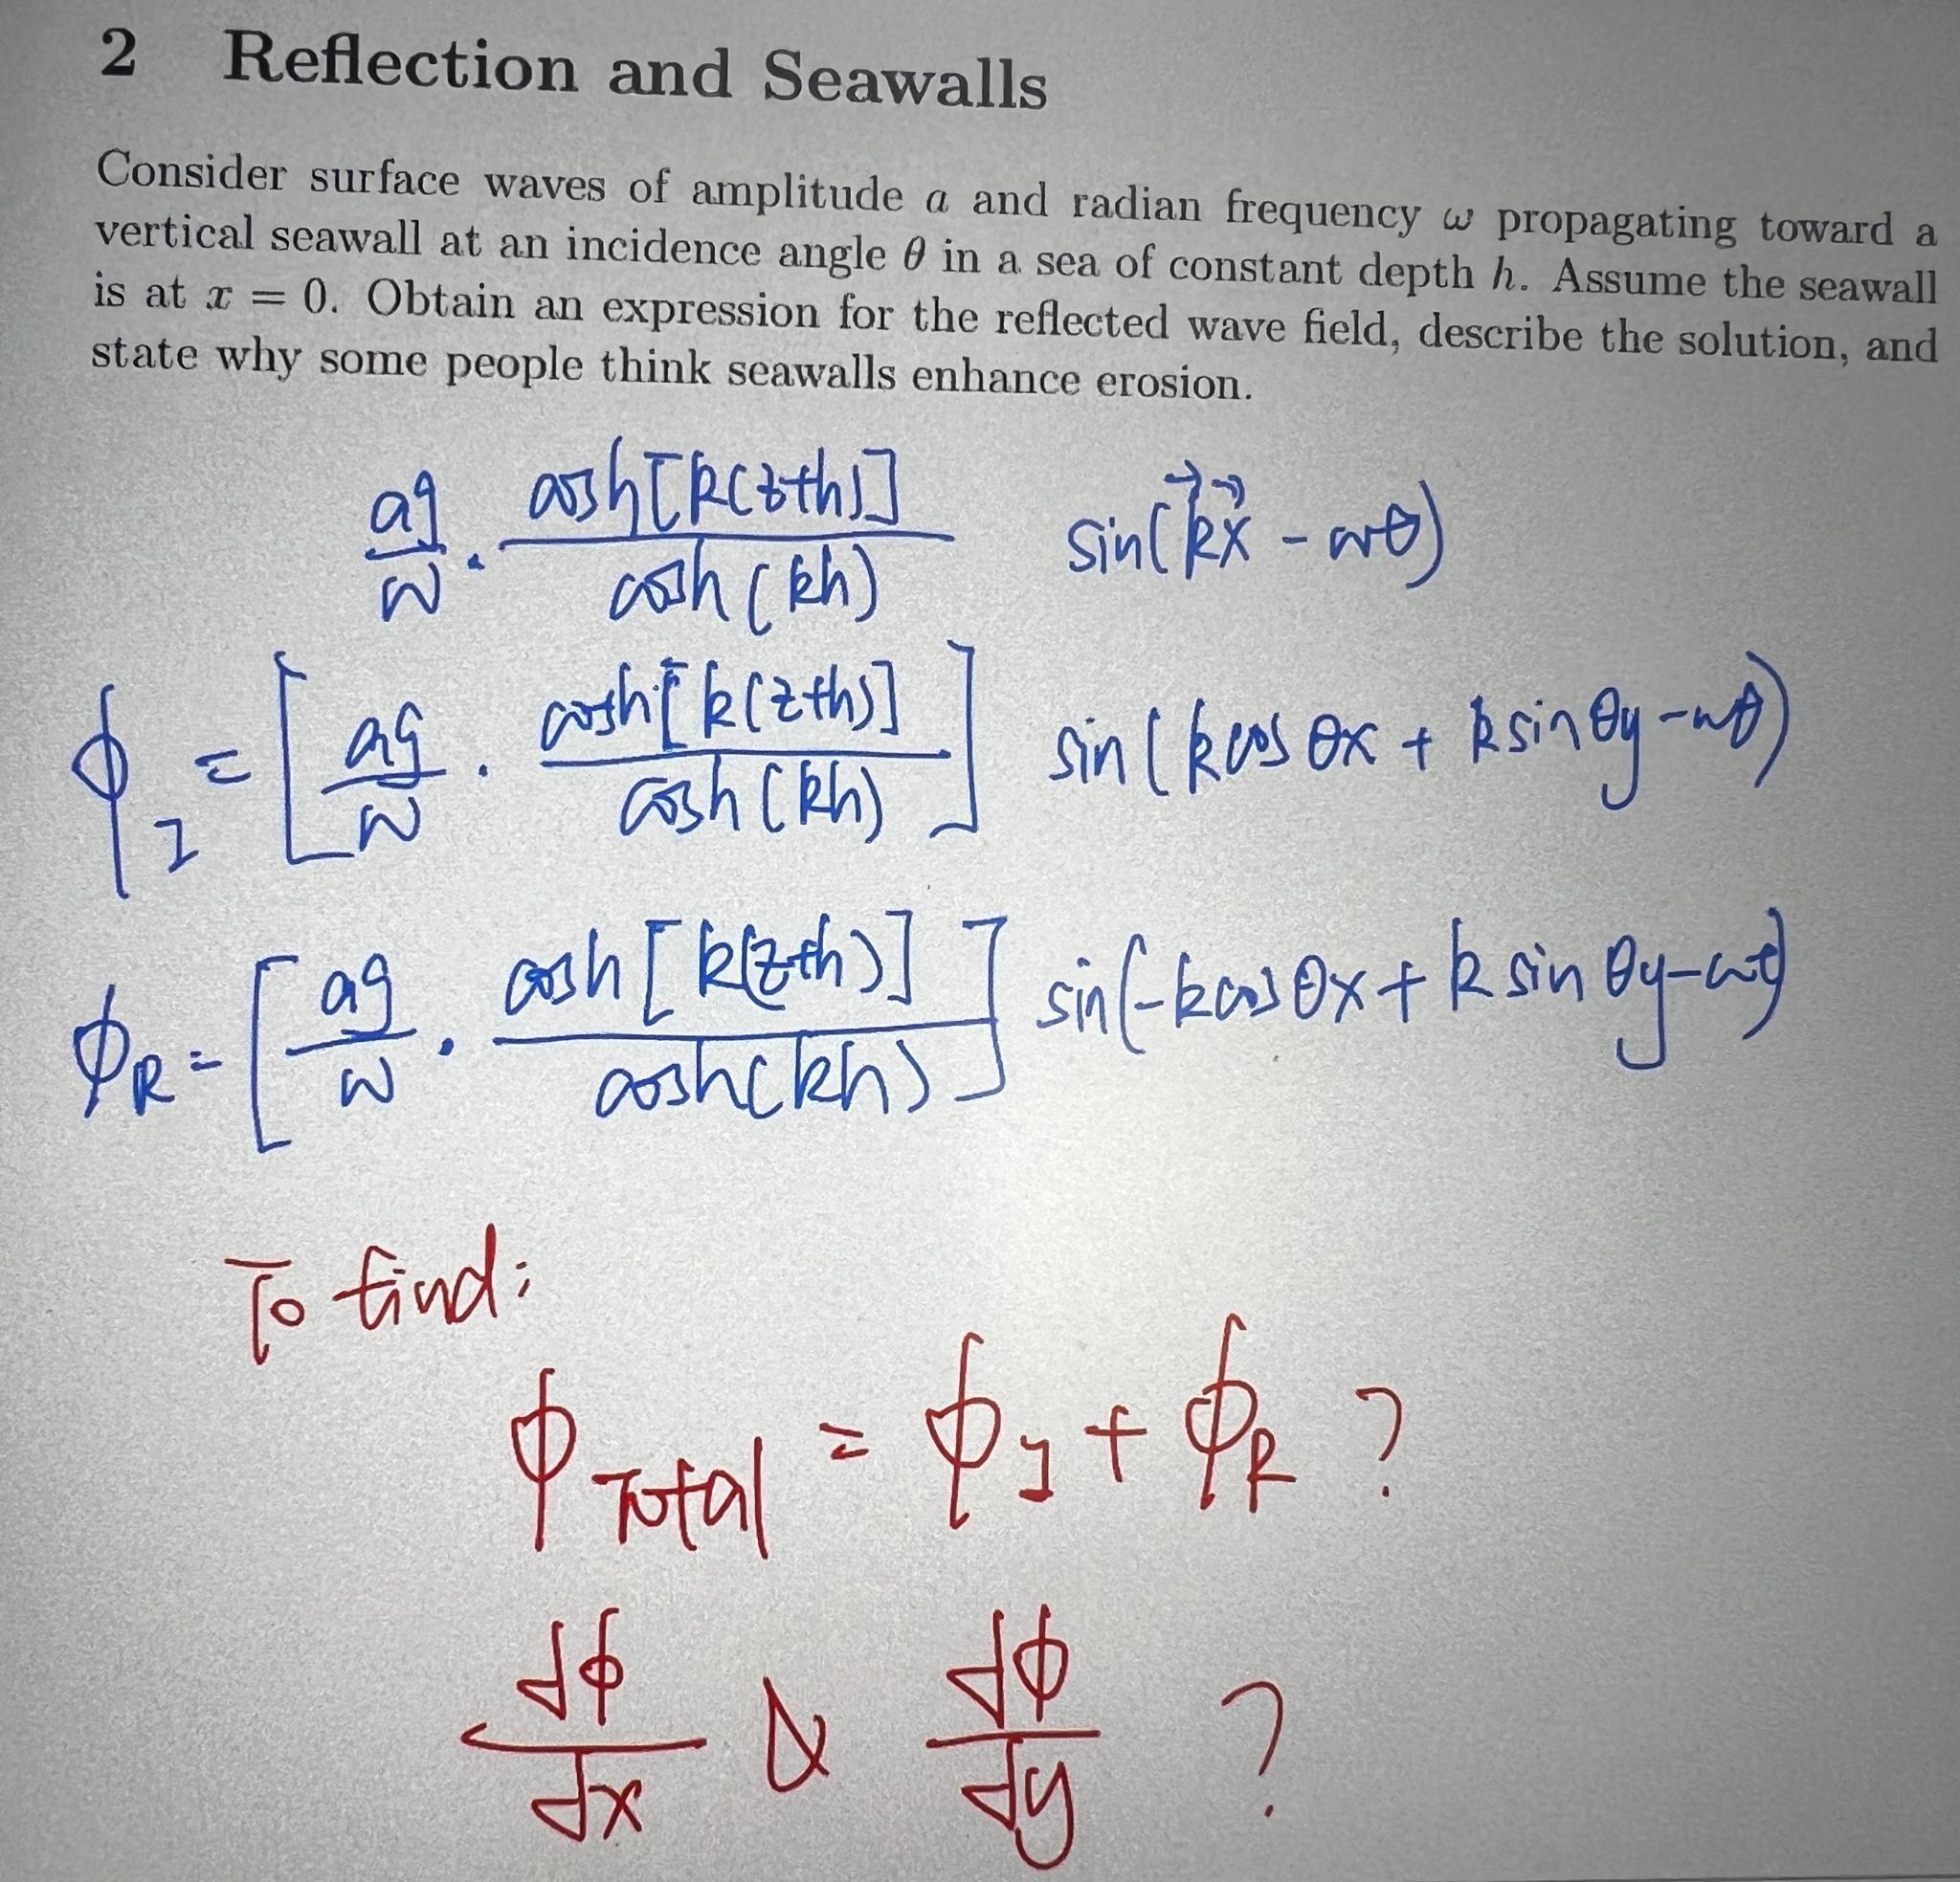 2 Reflection and Seawalls
Consider surface waves of amplitude a and radian frequency ω propagating toward a
vertical seawall at an incidence angle θ in a sea of constant depth h. Assume the seawall
is at x = 0. Obtain an expression for the reflected wave field, describe the solution, and
state why some people think seawalls enhance erosion.
ag/ω · cosh[k(z+h)]/cosh(kh) sin(k⃗x⃗ - ωt)
ϕ_I = [ag/ω · cosh[k(z+h)]/cosh(kh)] sin(k cos θx + k sin θy - ωt)
ϕ_R = [ag/ω · cosh[k(z+h)]/cosh(kh)] sin(-k cos θx + k sin θy - ωt)
To find:
ϕ_Total = ϕ_I + ϕ_R ?
dϕ/dx & dϕ/dy ?